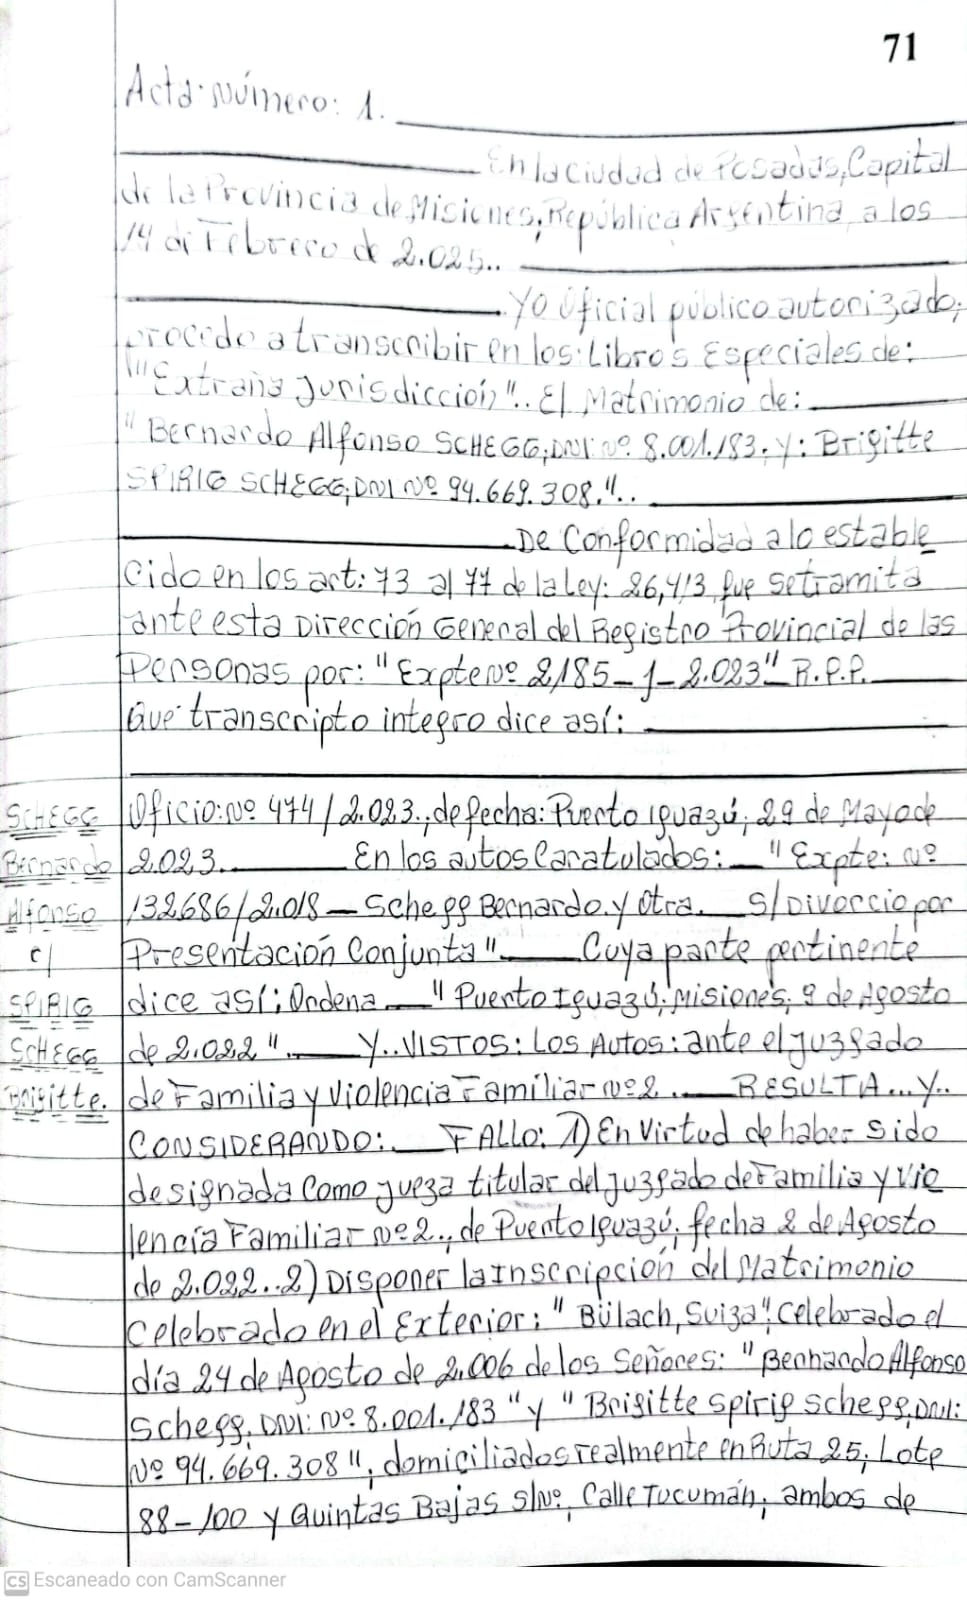 71
Acta número: 1.
En la ciudad de Posadas, Capital
de la Provincia de Misiones, República Argentina, a los
14 de Febrero de 2.025..
Yo Oficial público autorizado,
procedo a transcribir en los: Libros Especiales de:
"Extraña Jurisdicción".. El Matrimonio de:
"Bernardo Alfonso SCHEGG, DNI Nº 8.001.183. y: Brigitte
SPIRIG SCHEGG, DNI Nº 94.669.308."..
De Conformidad a lo estable
cido en los art: 73 al 77 de la Ley: 26,413, fue se tramita
ante esta Dirección General del Registro Provincial de las
Personas por: "Expte Nº 2185-1-2.023" R.P.P.
Que transcripto integro dice así:
SCHEGG
Bernardo
Alfonso
c/
SPIRIG
SCHEGG
Brigitte.
Oficio: Nº 474/2.023., de fecha: Puerto Iguazú, 29 de Mayo de
2.023. En los autos Caratulados: "Expte: Nº
132686/2.018 - Schegg Bernardo. y Otra. S/Divorcio por
Presentación Conjunta" Cuya parte pertinente
dice así; Ordena "Puerto Iguazú, Misiones, 9 de Agosto
de 2.022". Y.. VISTOS: Los Autos: ante el Juzgado
de Familia y Violencia Familiar Nº 2. RESULTA... Y..
CONSIDERANDO: FALLO: 1) En Virtud de haber sido
designada Como Jueza titular del Juzgado de Familia y Vio
lencia Familiar Nº 2., de Puerto Iguazú, fecha 2 de Agosto
de 2.022.. 2) Disponer la Inscripción del Matrimonio
Celebrado en el Exterior: "Bülach, Suiza", Celebrado el
día 24 de Agosto de 2.006 de los Señores: "Bernardo Alfonso
Schegg, DNI: Nº 8.001.183" y "Brigitte Spirig Schegg, DNI:
Nº 94.669.308", domiciliados realmente en Ruta 25, Lote
88-100 y Quintas Bajas S/Nº, Calle Tucumán, ambos de
CS Escaneado con CamScanner